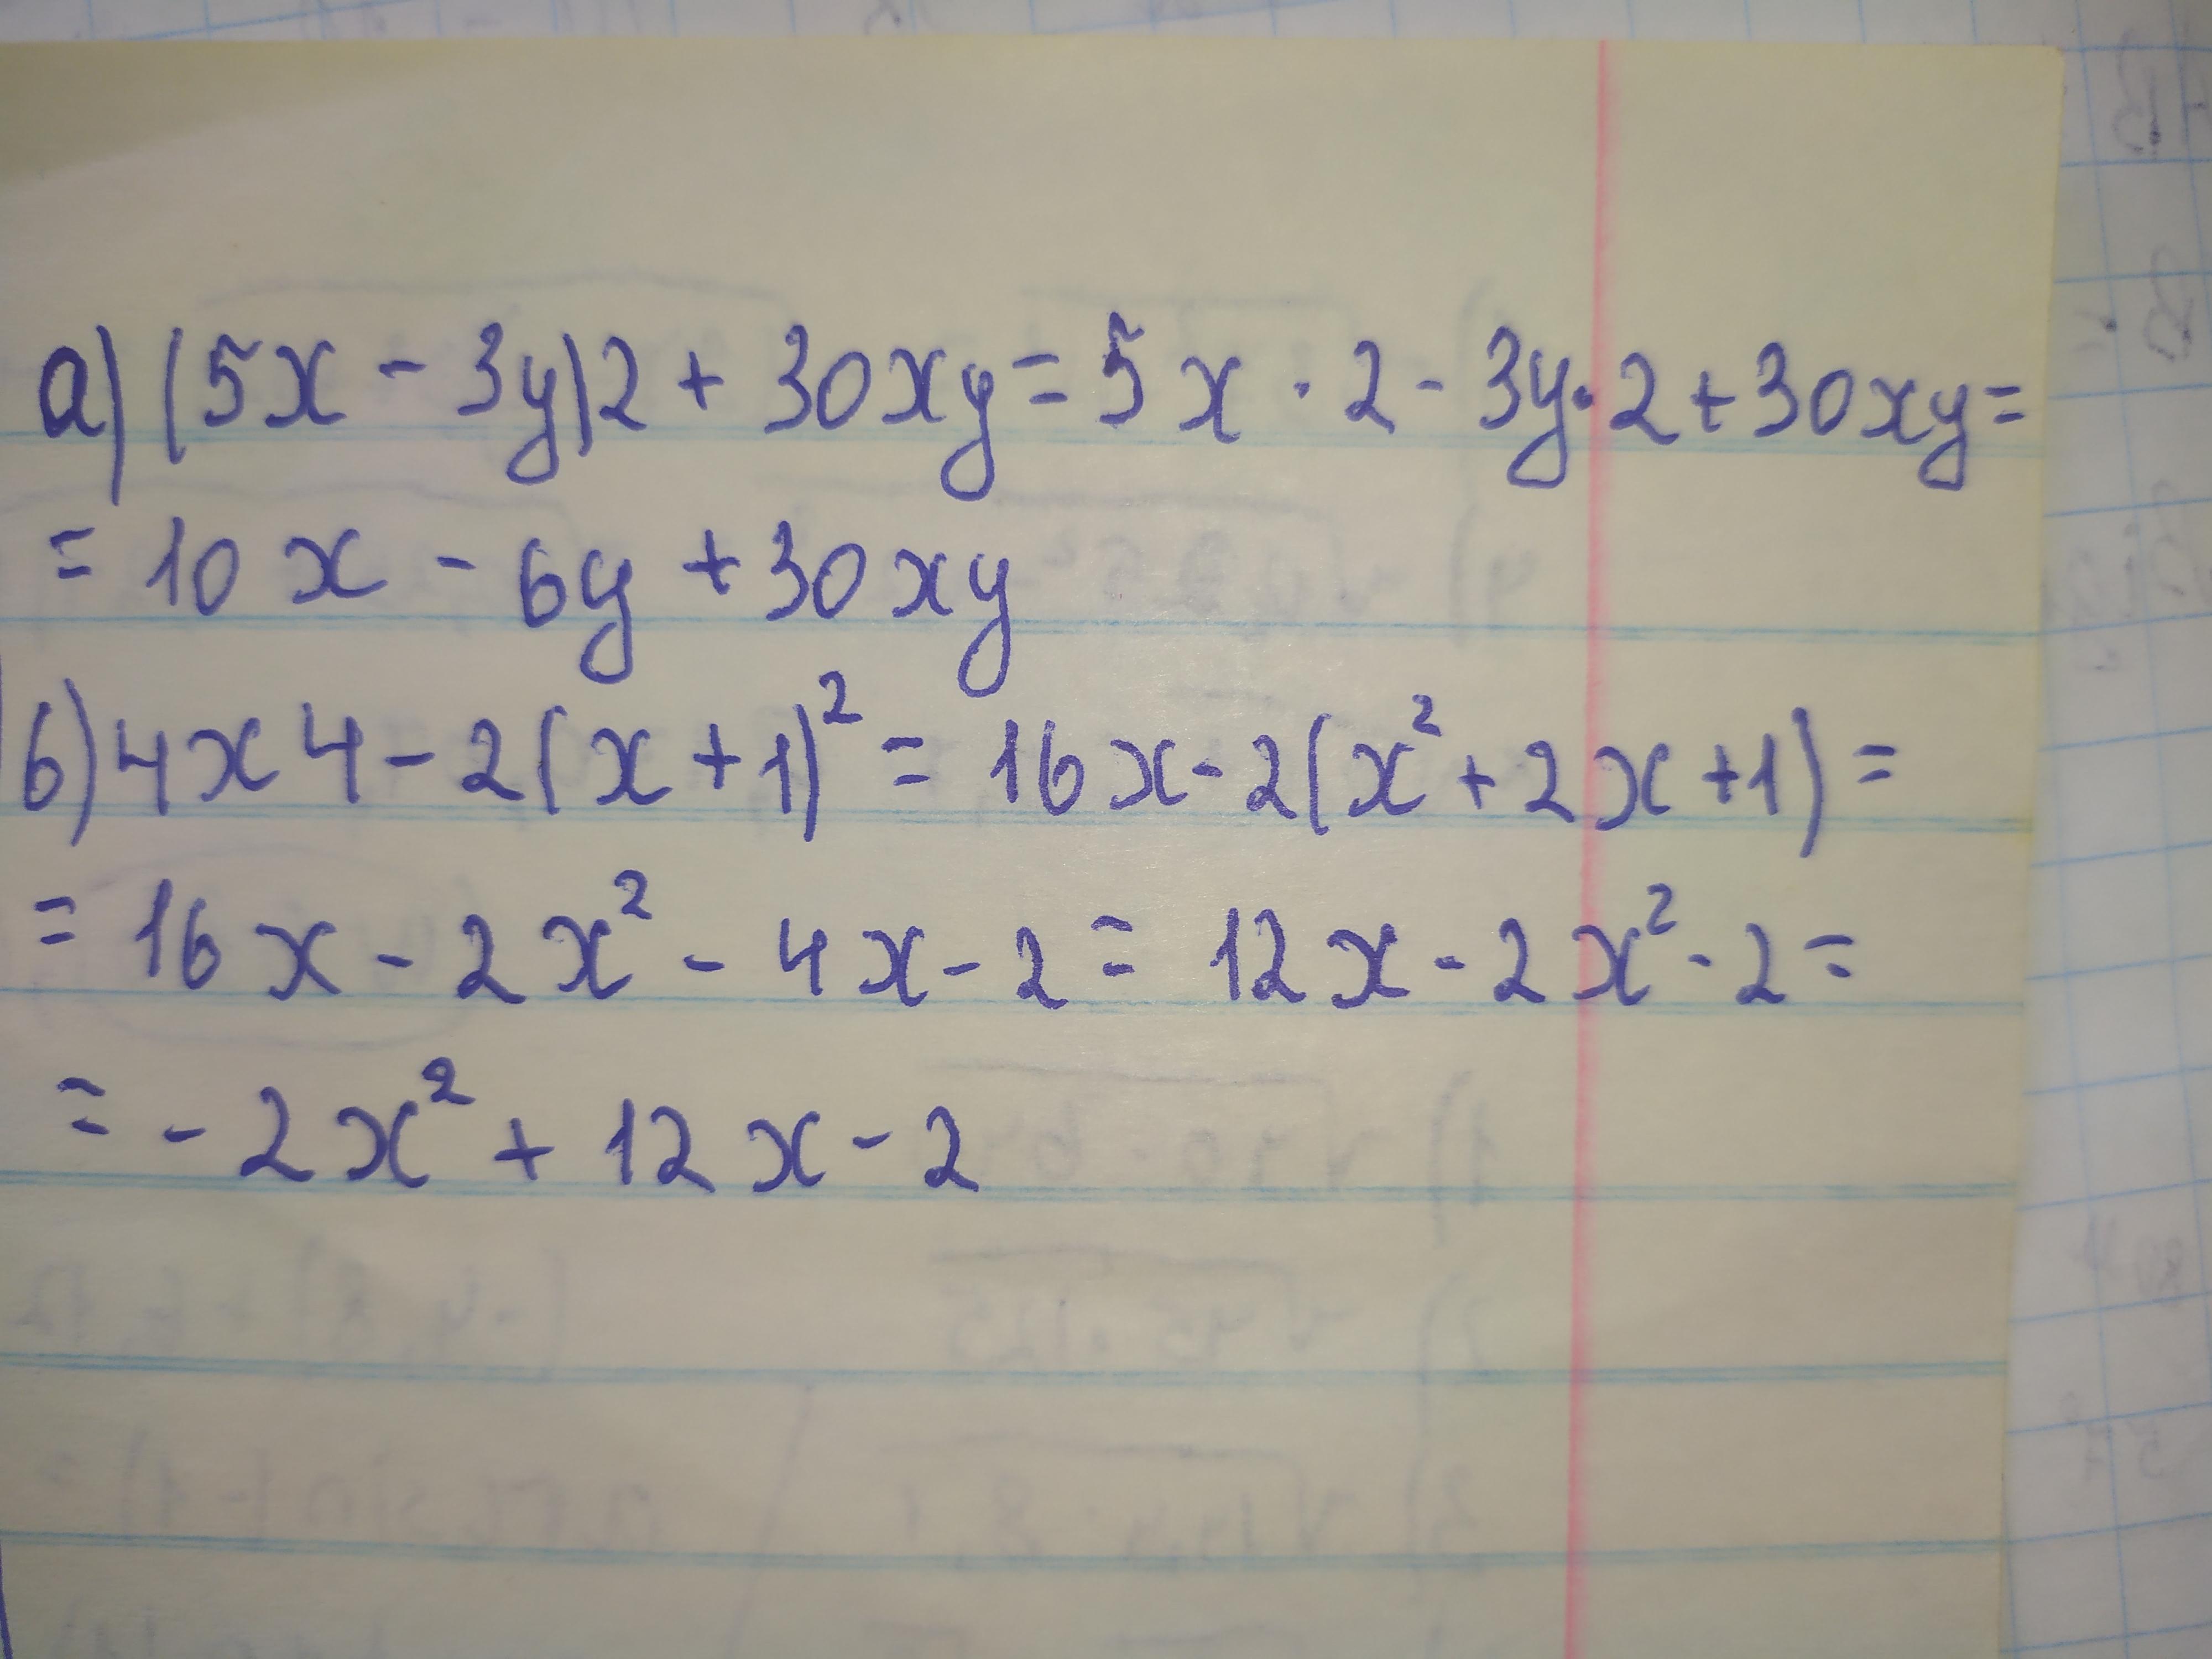 а) (5x - 3y)2 + 30xy = 5x · 2 - 3y · 2 + 30xy =
= 10x - 6y + 30xy
б) 4x4 - 2(x + 1)² = 16x - 2(x² + 2x + 1) =
= 16x - 2x² - 4x - 2 = 12x - 2x² - 2 =
= - 2x² + 12x - 2